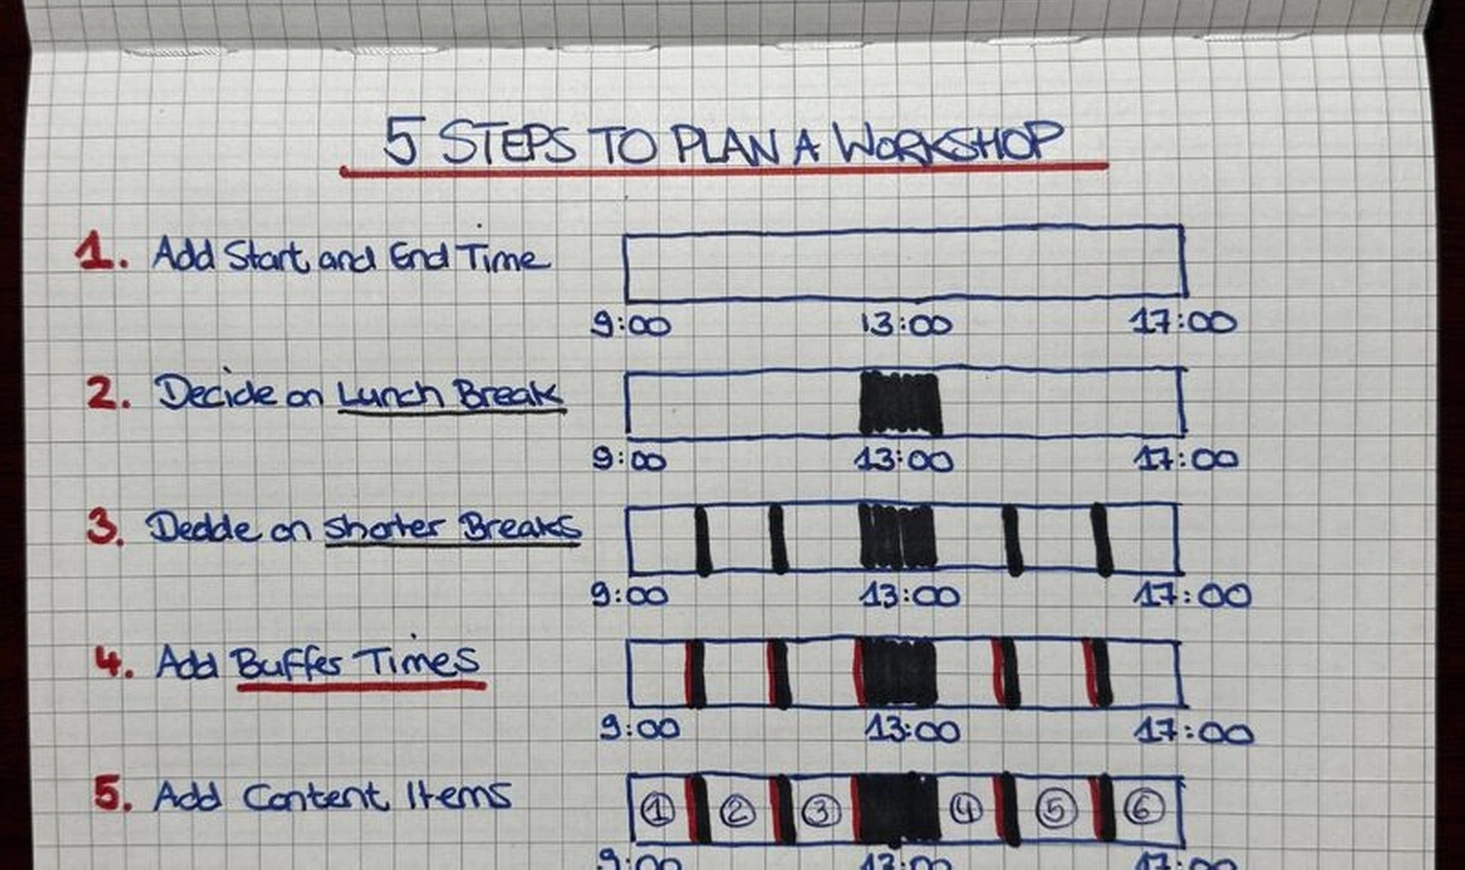 5 STEPS TO PLAN A WORKSHOP
1. Add Start and End Time
9:00 13:00 17:00
2. Decide on Lunch Break
9:00 13:00 17:00
3. Decide on Shorter Breaks
9:00 13:00 17:00
4. Add Buffer Times
9:00 13:00 17:00
5. Add Content Items
1 2 3 4 5 6
9:00 13:00 17:00